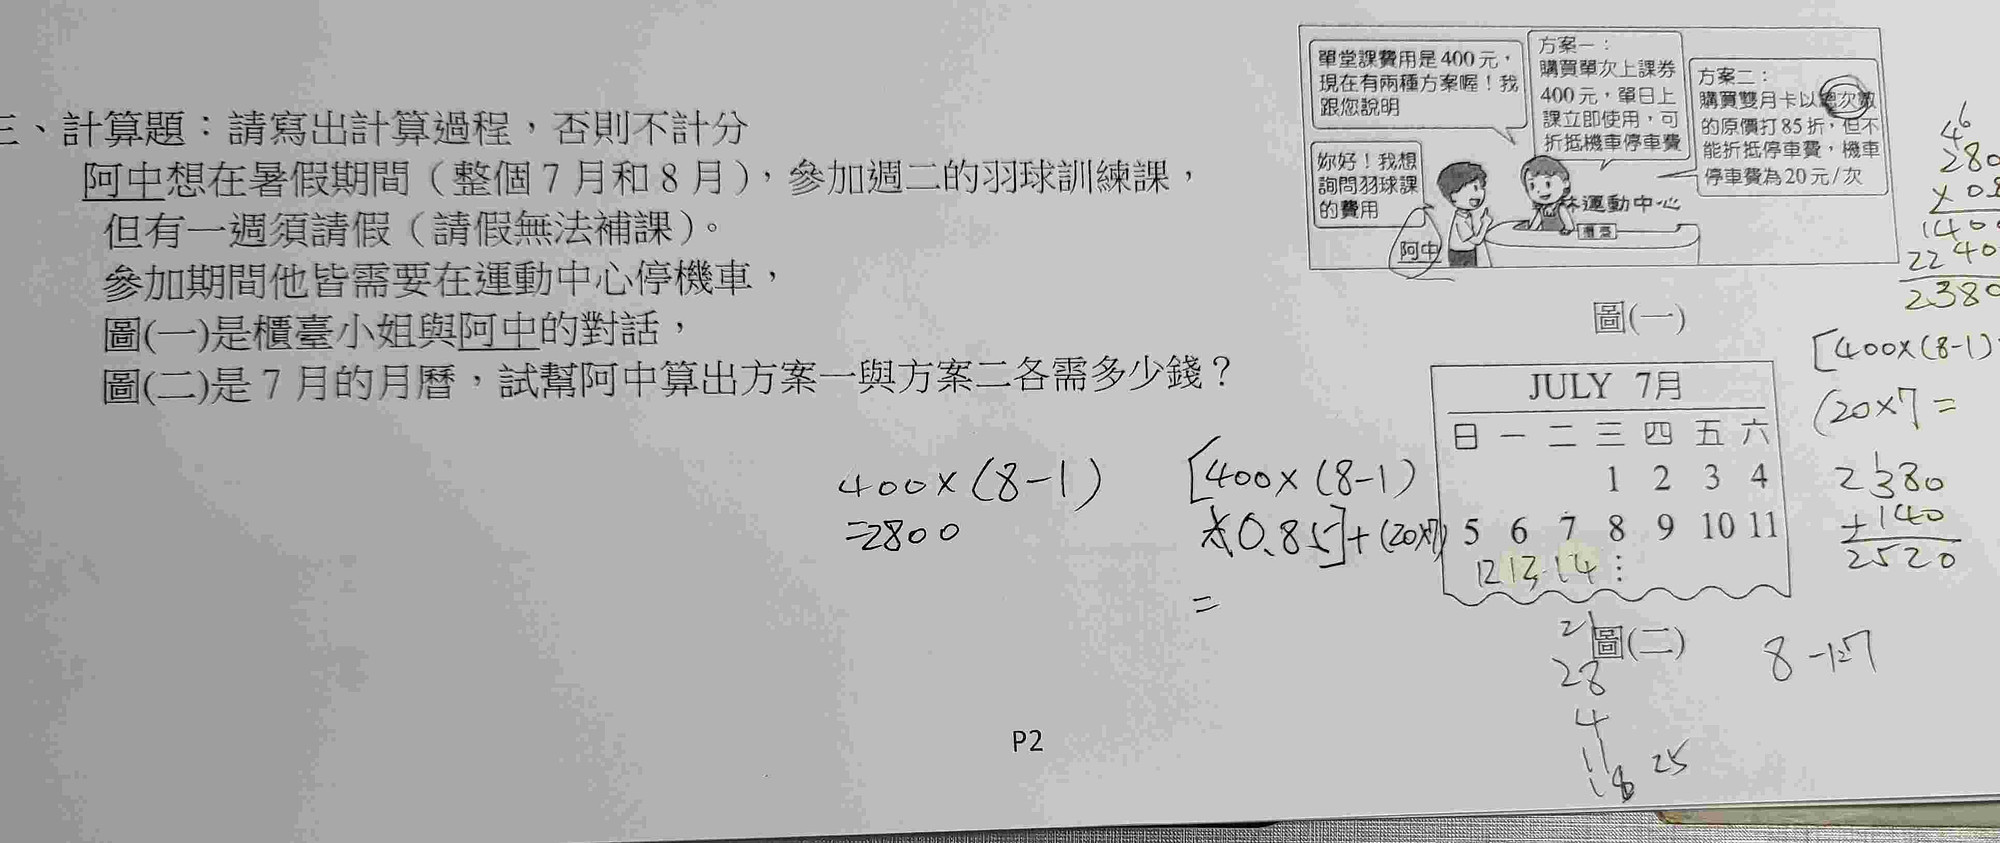 三、計算題：請寫出計算過程，否則不計分
阿中想在暑假期間（整個7月和8月），參加週二的羽球訓練課，
但有一週須請假（請假無法補課）。
參加期間他皆需要在運動中心停機車，
圖(一)是櫃臺小姐與阿中的對話，
圖(二)是7月的月曆，試幫阿中算出方案一與方案二各需多少錢？
400×(8-1)
=2800
[400×(8-1)
×0.85]+(20×7)
=
單堂課費用是400元，
現在有兩種方案喔！我
跟您說明
妳好！我想
詢問羽球課
的費用
方案一：
購買單次上課券
400元，單日上
課立即使用，可
折抵機車停車費
方案二：
購買雙月卡以總次數
的原價打85折，但不
能折抵停車費，機車
停車費為20元/次
林運動中心
阿中
圖(一)
JULY 7月
日 一 二 三 四 五 六
1 2 3 4
5 6 7 8 9 10 11
12 13 14 ⋮
圖(二)
21
28
4
11
18 25
8-1=7
280
×0.8
140
2240
2380
[400×(8-1)
(20×7=
2380
+140
2520
P2